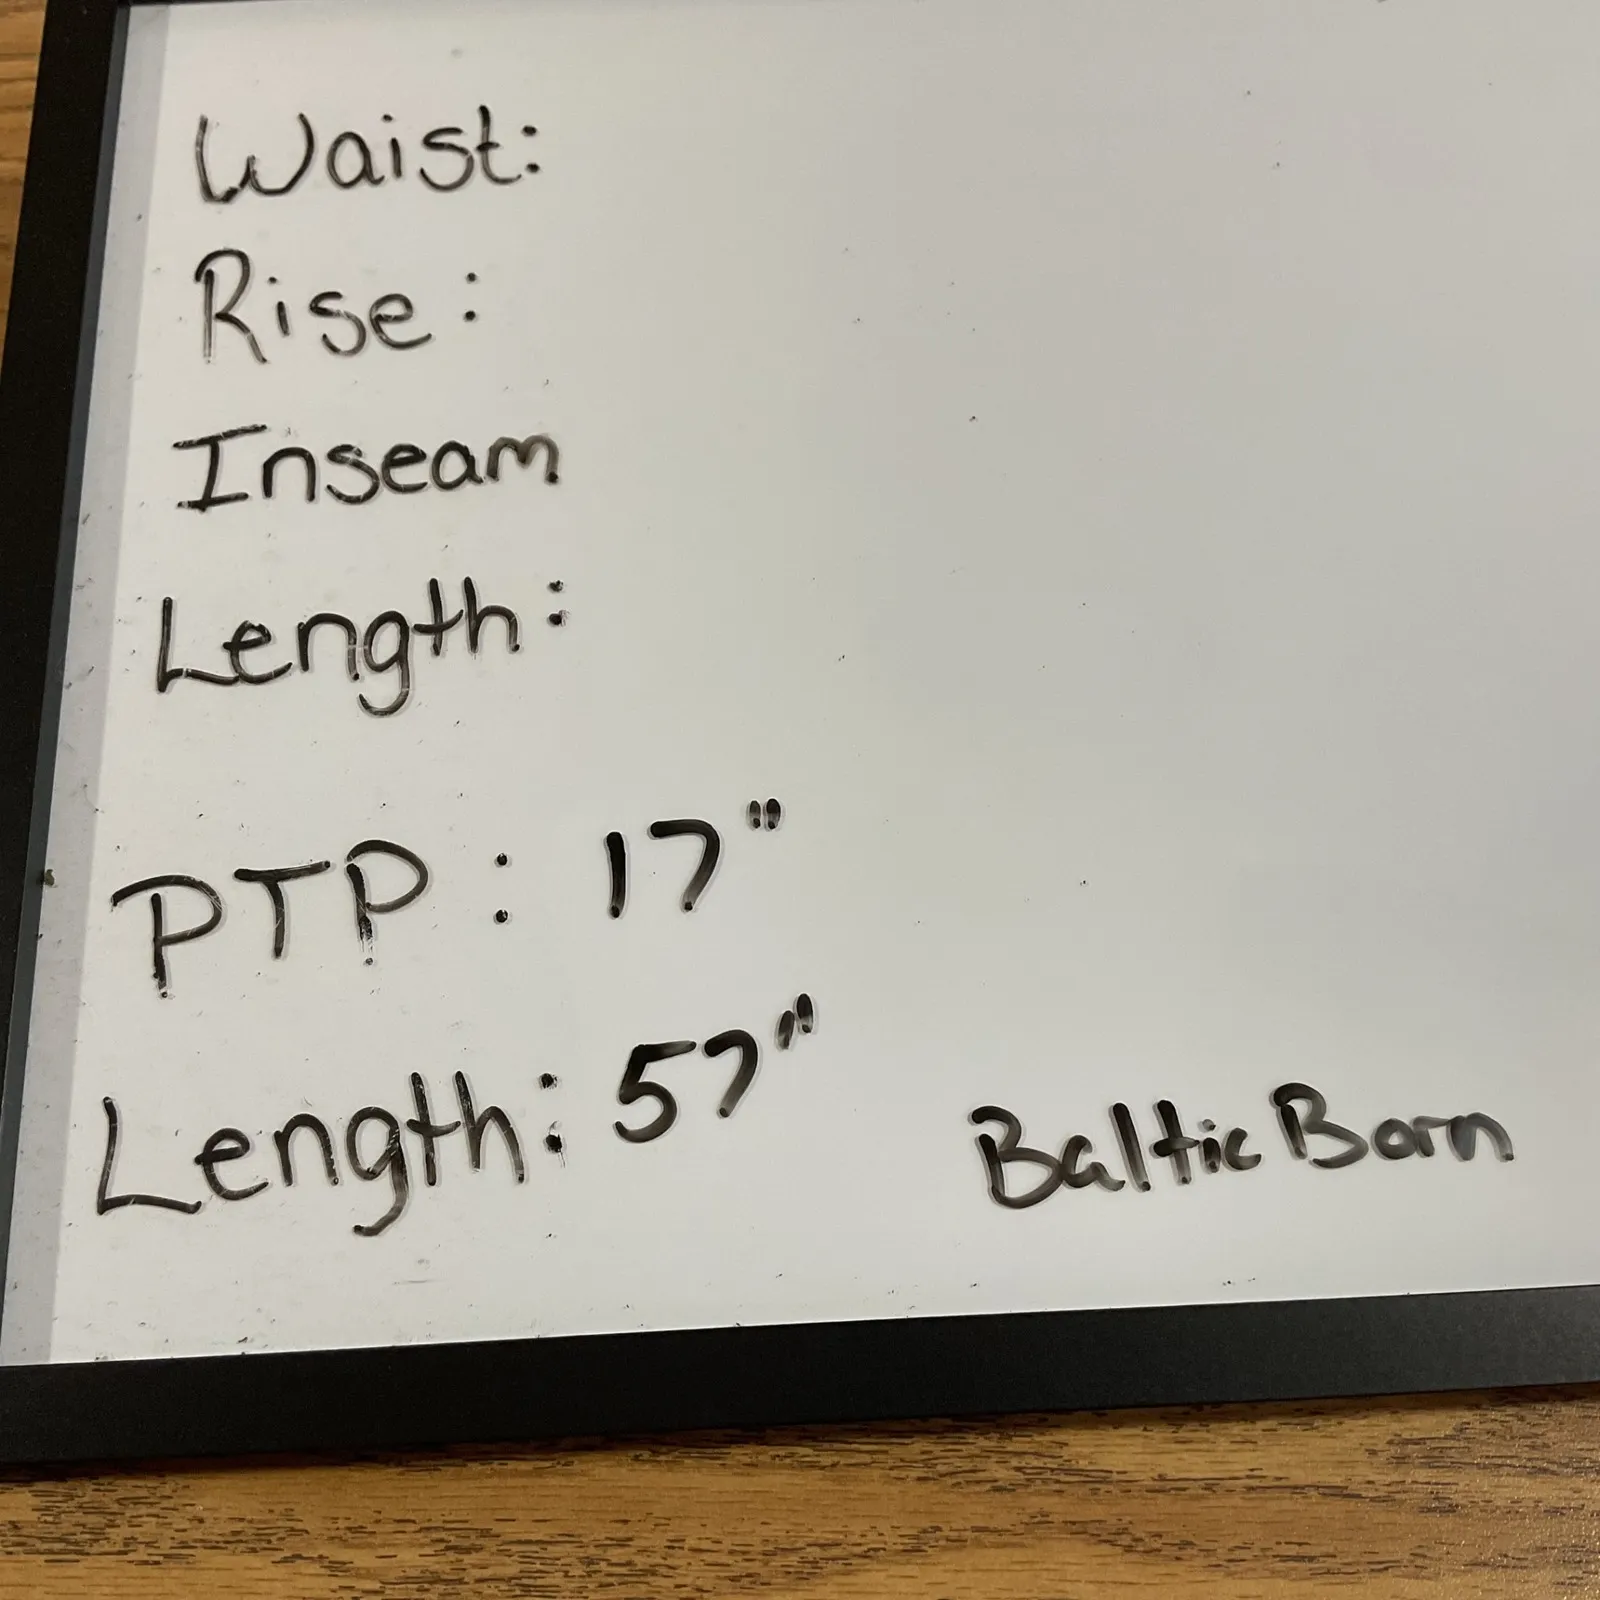 Waist:
Rise:
Inseam
Length:
PTP: 17"
Length: 57"
Baltic Born